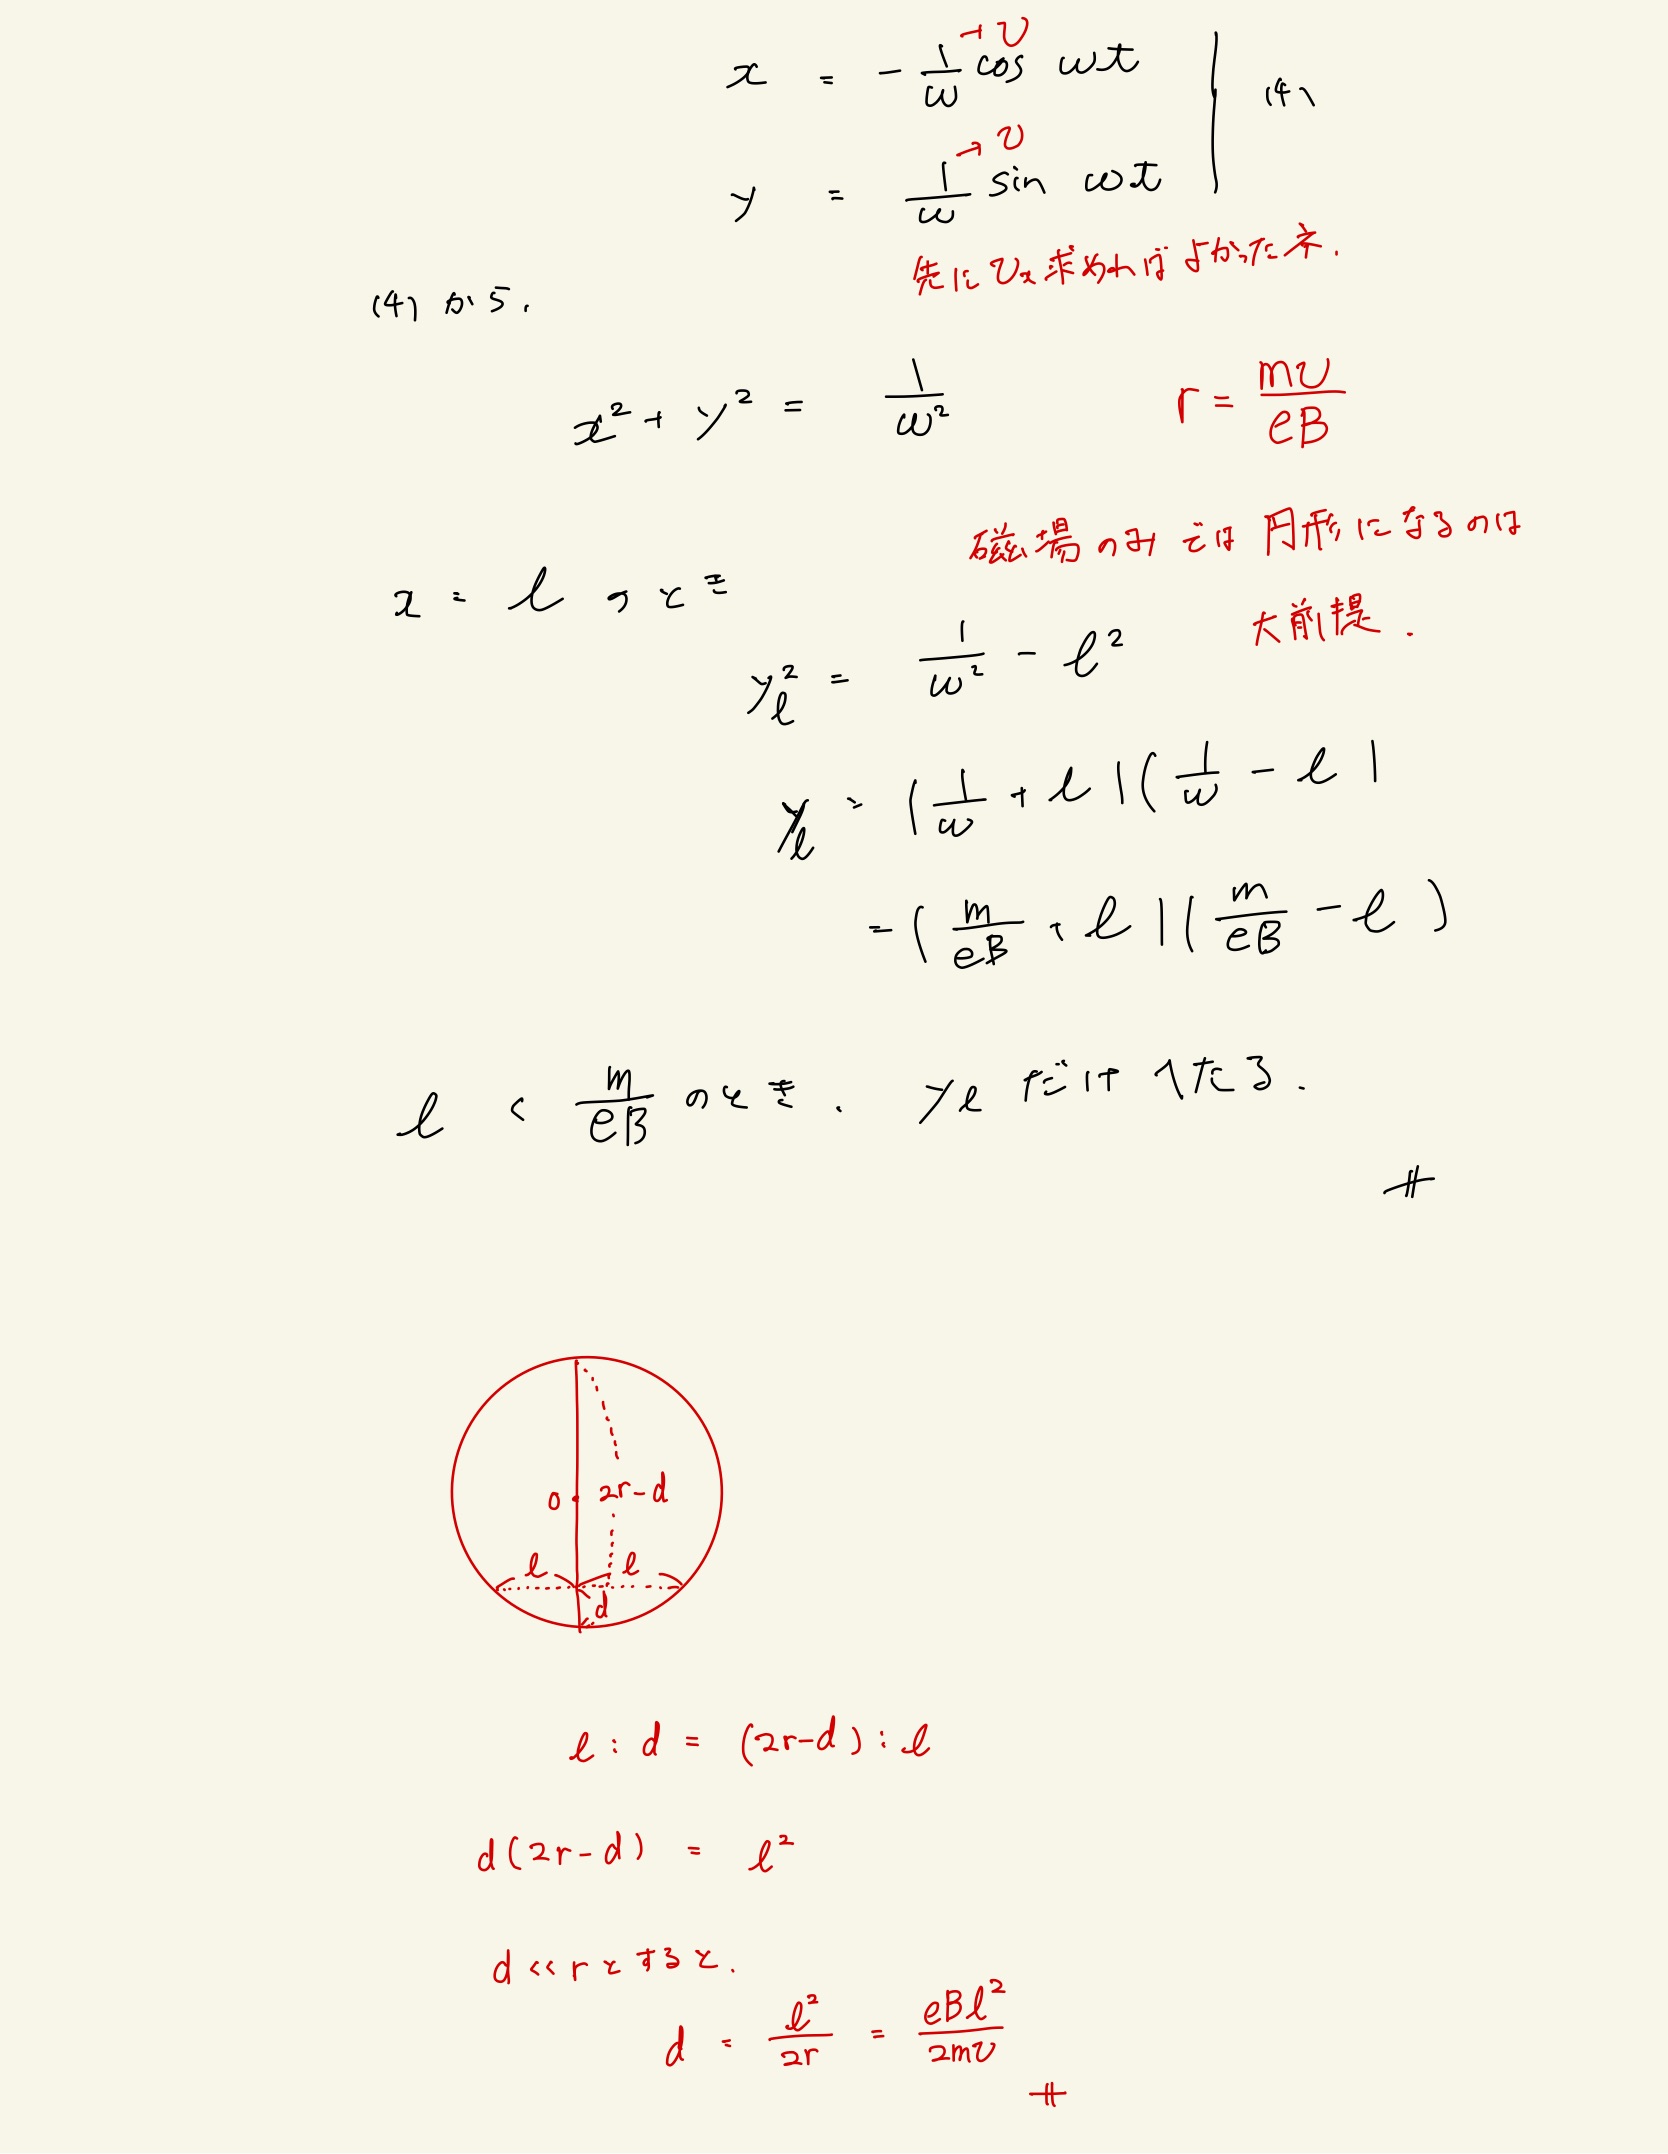 → v
x = - 1/ω cos ωt
(4)
→ v
y = 1/ω sin ωt
先に vx 求めればよかったネ.
(4) から,
x² + y² = 1/ω²
r = mv/eB
磁場のみでは円形になるのは
大前提.
x = l のとき
y_l² = 1/ω² - l²
y_l = (1/ω + l)(1/ω - l)
= (m/eB + l)(m/eB - l)
l < m/eB のとき. y_l だけへだたる.
#
O 2r-d
l l
d
l : d = (2r-d) : l
d(2r-d) = l²
d << r とすると.
d = l²/2r = eBl²/2mv
#